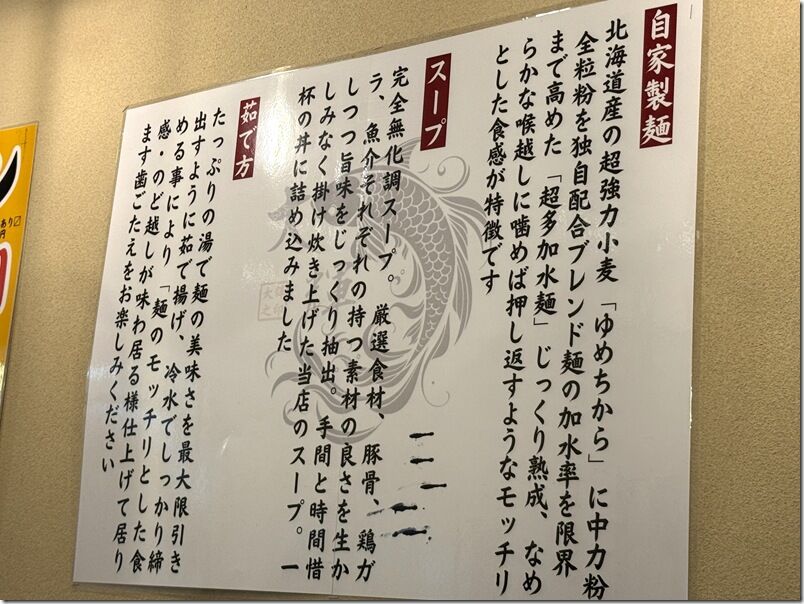 自家製麺
北海道産の超強力小麦「ゆめちから」に中力粉
全粒粉を独自配合ブレンド麺の加水率を限界
まで高めた「超多加水麺」じっくり熟成、なめ
らかな喉越しに噛めば押し返すようなモッチリ
とした食感が特徴です
スープ
完全無化調スープ。厳選食材、豚骨、鶏ガ
ラ、魚介それぞれの持つ素材の良さを生か
しつつ旨味をじっくり抽出。手間と時間惜
しみなく掛け炊き上げた当店のスープ。一
杯の丼に詰め込みました
茹で方
たっぷりの湯で麺の美味さを最大限引き
出すように茹で揚げ、冷水でしっかり締
める事により「麺のモッチリとした食
感・のど越しが味わ居る様仕上げて居り
ます歯ごたえをお楽しみください
あり
円